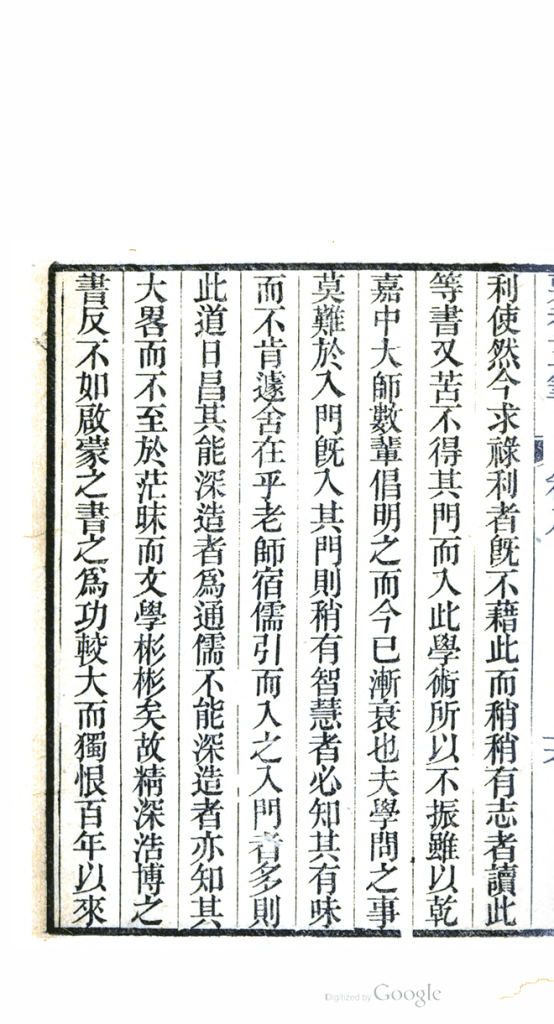 利使然今求祿利者旣不藉此而稍稍有志者讀此
等書又苦不得其門而入此學術所以不振雖以乾
嘉中大師數輩倡明之而今已漸衰也夫學問之事
莫難於入門旣入其門則稍有智慧者必知其有味
而不肯遽舍在乎老師宿儒引而入之入門者多則
此道日昌其能深造者爲通儒不能深造者亦知其
大畧而不至於茫昧而文學彬彬矣故精深浩博之
書反不如啟蒙之書之爲功較大而獨恨百年以來
Digitized by Google